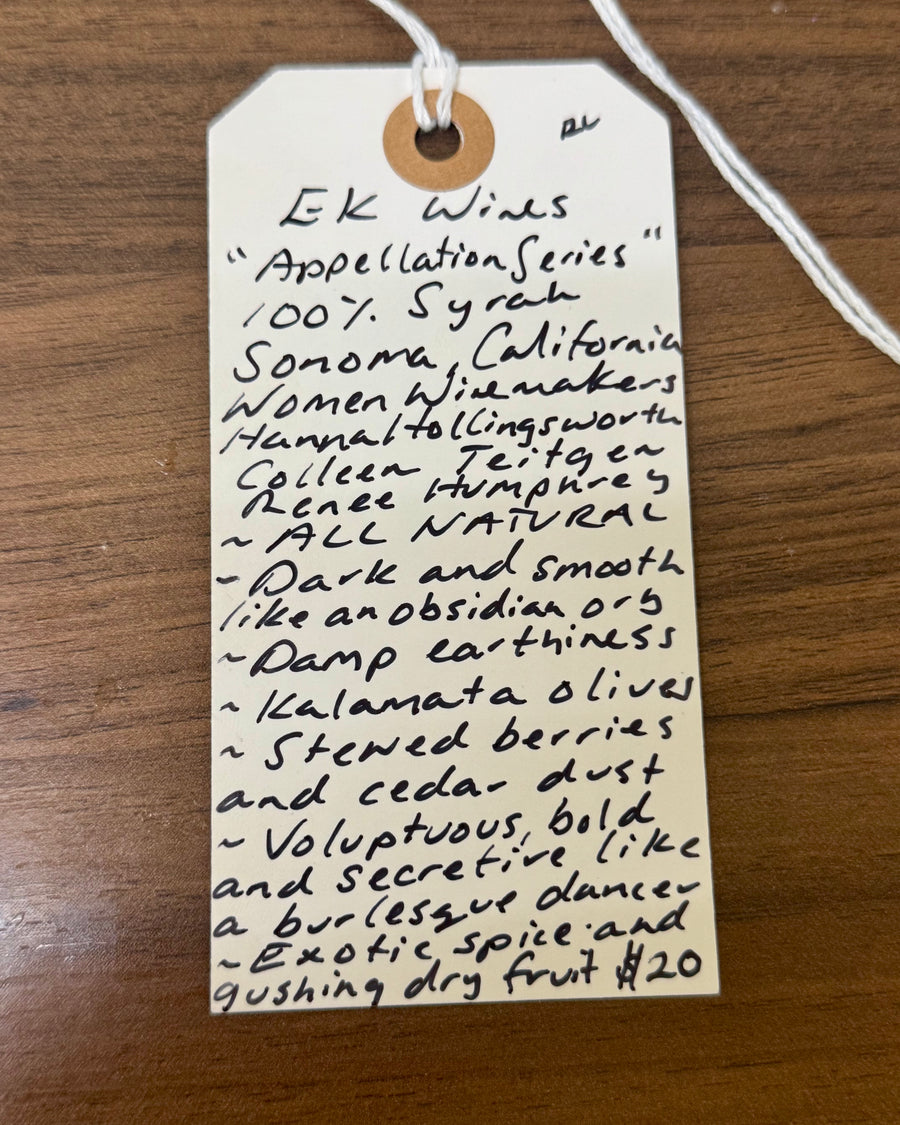 EK Wines
"Appellation Series"
100% Syrah
Sonoma, California
Women Winemakers
Hannah Hollingsworth
Colleen Teitgen
Renee Humphrey
~ ALL NATURAL
~ Dark and smooth
like an obsidian orb
~ Damp earthiness
~ Kalamata olives
~ Stewed berries
and cedar dust
~ Voluptuous, bold
and secretive like
a burlesque dancer
~ Exotic spice and
gushing dry fruit $20